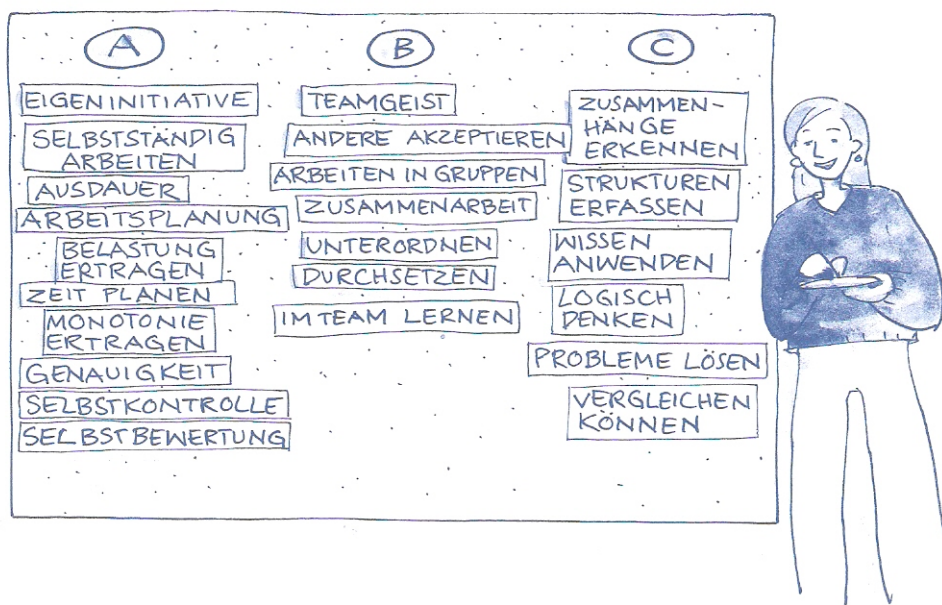 A
EIGENINITIATIVE
SELBSTSTÄNDIG
ARBEITEN
AUSDAUER
ARBEITSPLANUNG
BELASTUNG
ERTRAGEN
ZEIT PLANEN
MONOTONIE
ERTRAGEN
GENAUIGKEIT
SELBSTKONTROLLE
SELBSTBEWERTUNG
B
TEAMGEIST
ANDERE AKZEPTIEREN
ARBEITEN IN GRUPPEN
ZUSAMMENARBEIT
UNTERORDNEN
DURCHSETZEN
IM TEAM LERNEN
C
ZUSAMMEN-
HÄNGE
ERKENNEN
STRUKTUREN
ERFASSEN
WISSEN
ANWENDEN
LOGISCH
DENKEN
PROBLEME LÖSEN
VERGLEICHEN
KÖNNEN